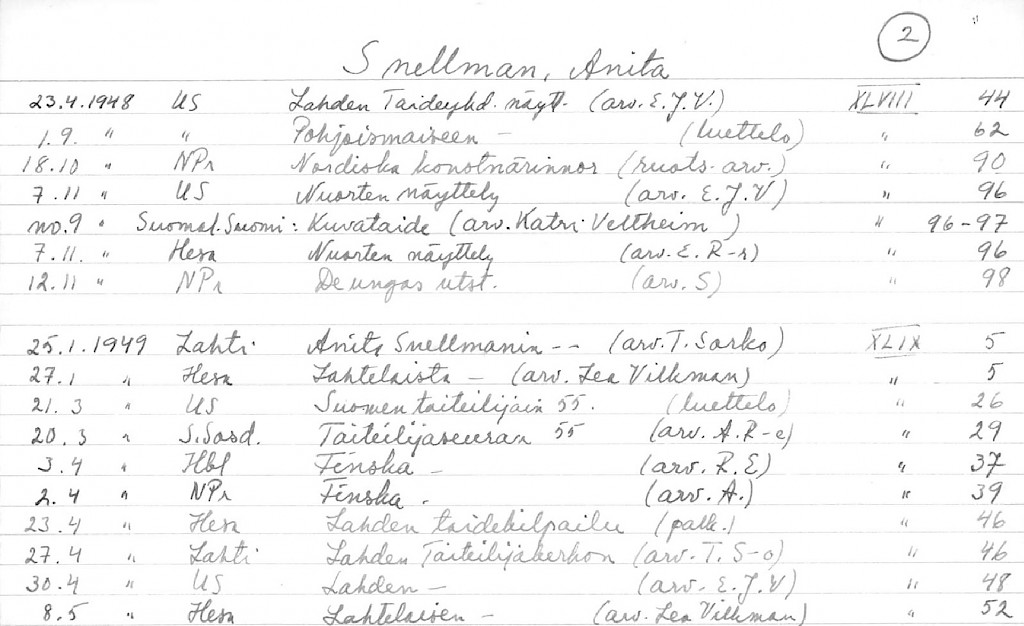 2
Snellman, Anita
23.4.1948 US Lahden Taideyhd. näytt. (arv. E.J.V.) XLVIII 44
1.9. " " Pohjoismaiseen – (luettelo) " 62
18.10 " NPr Nordiska konstnärinnor (ruots. arv.) " 90
7.11 " US Nuorten näyttely (arv. E.J.V) " 96
no.9 " Suomal. Suomi: Kuvataide (arv. Katri Veltheim) " 96-97
7.11. " Hesa Nuorten näyttely (arv. E.R-r) " 96
12.11 " NPr De ungas utst. (arv. S) " 98
25.1.1949 Lahti Anita Snellmanin -- (arv. T. Sarko) XLIX 5
27.1 " Hesa Lahtelaista – (arv. Lea Vilkman) " 5
21.3 " US Suomen taiteilijain 55. (luettelo) " 26
20.3 " S.Sosd. Taiteilijaseuran 55 (arv. A.R-e) " 29
3.4 " Hbl Finska – (arv. R.E) " 37
2.4 " NPr Finska . (arv. A.) " 39
23.4 " Hesa Lahden taidekilpailu (palk.) " 46
27.4 " Lahti Lahden Taiteilijakerhon (arv. T. S-o) " 46
30.4 " US Lahden – (arv. E.J.V) " 48
8.5 " Hesa Lahtelaisen – (arv. Lea Vilkman) " 52